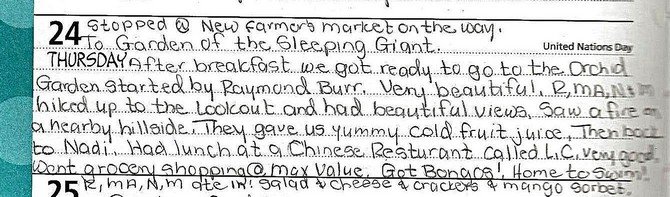 24 Stopped @ New farmer's market on the way.
To Garden of the Sleeping Giant. United Nations Day
THURSDAY After breakfast we got ready to go to the Orchid
Garden started by Raymond Burr. Very beautiful. R, MA, N & M
hiked up to the Lookout and had beautiful views. Saw a fire on
a nearby hillside. They gave us yummy cold fruit juice. Then back
to Nadi. Had lunch at a Chinese Resturant called L.C. very good.
Went grocery shopping @ Max Value. Got Bongos! Home to swim!
25 R, MA, N, M ate in! Salad & cheese & crackers & mango sorbet.